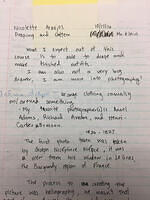 Nicolette 10/17/16
Drawing and Pattern
What I expect out of this
course is to able to draw and
more finished outfits.
I can also not a very big
drawer I am more into photography.
or around something.
- My favorite photographer(s) Ansel
Adams, Richard Avedon, and Henri -
Cartier-Bresson.
1826 - 1827
The first photo taken was taken
by Joseph Nicéphore Niépce, it was
a view from his window in Le Gras
the Burgundy region of France.
The process to creating the
picture was heliography, he wasn't that